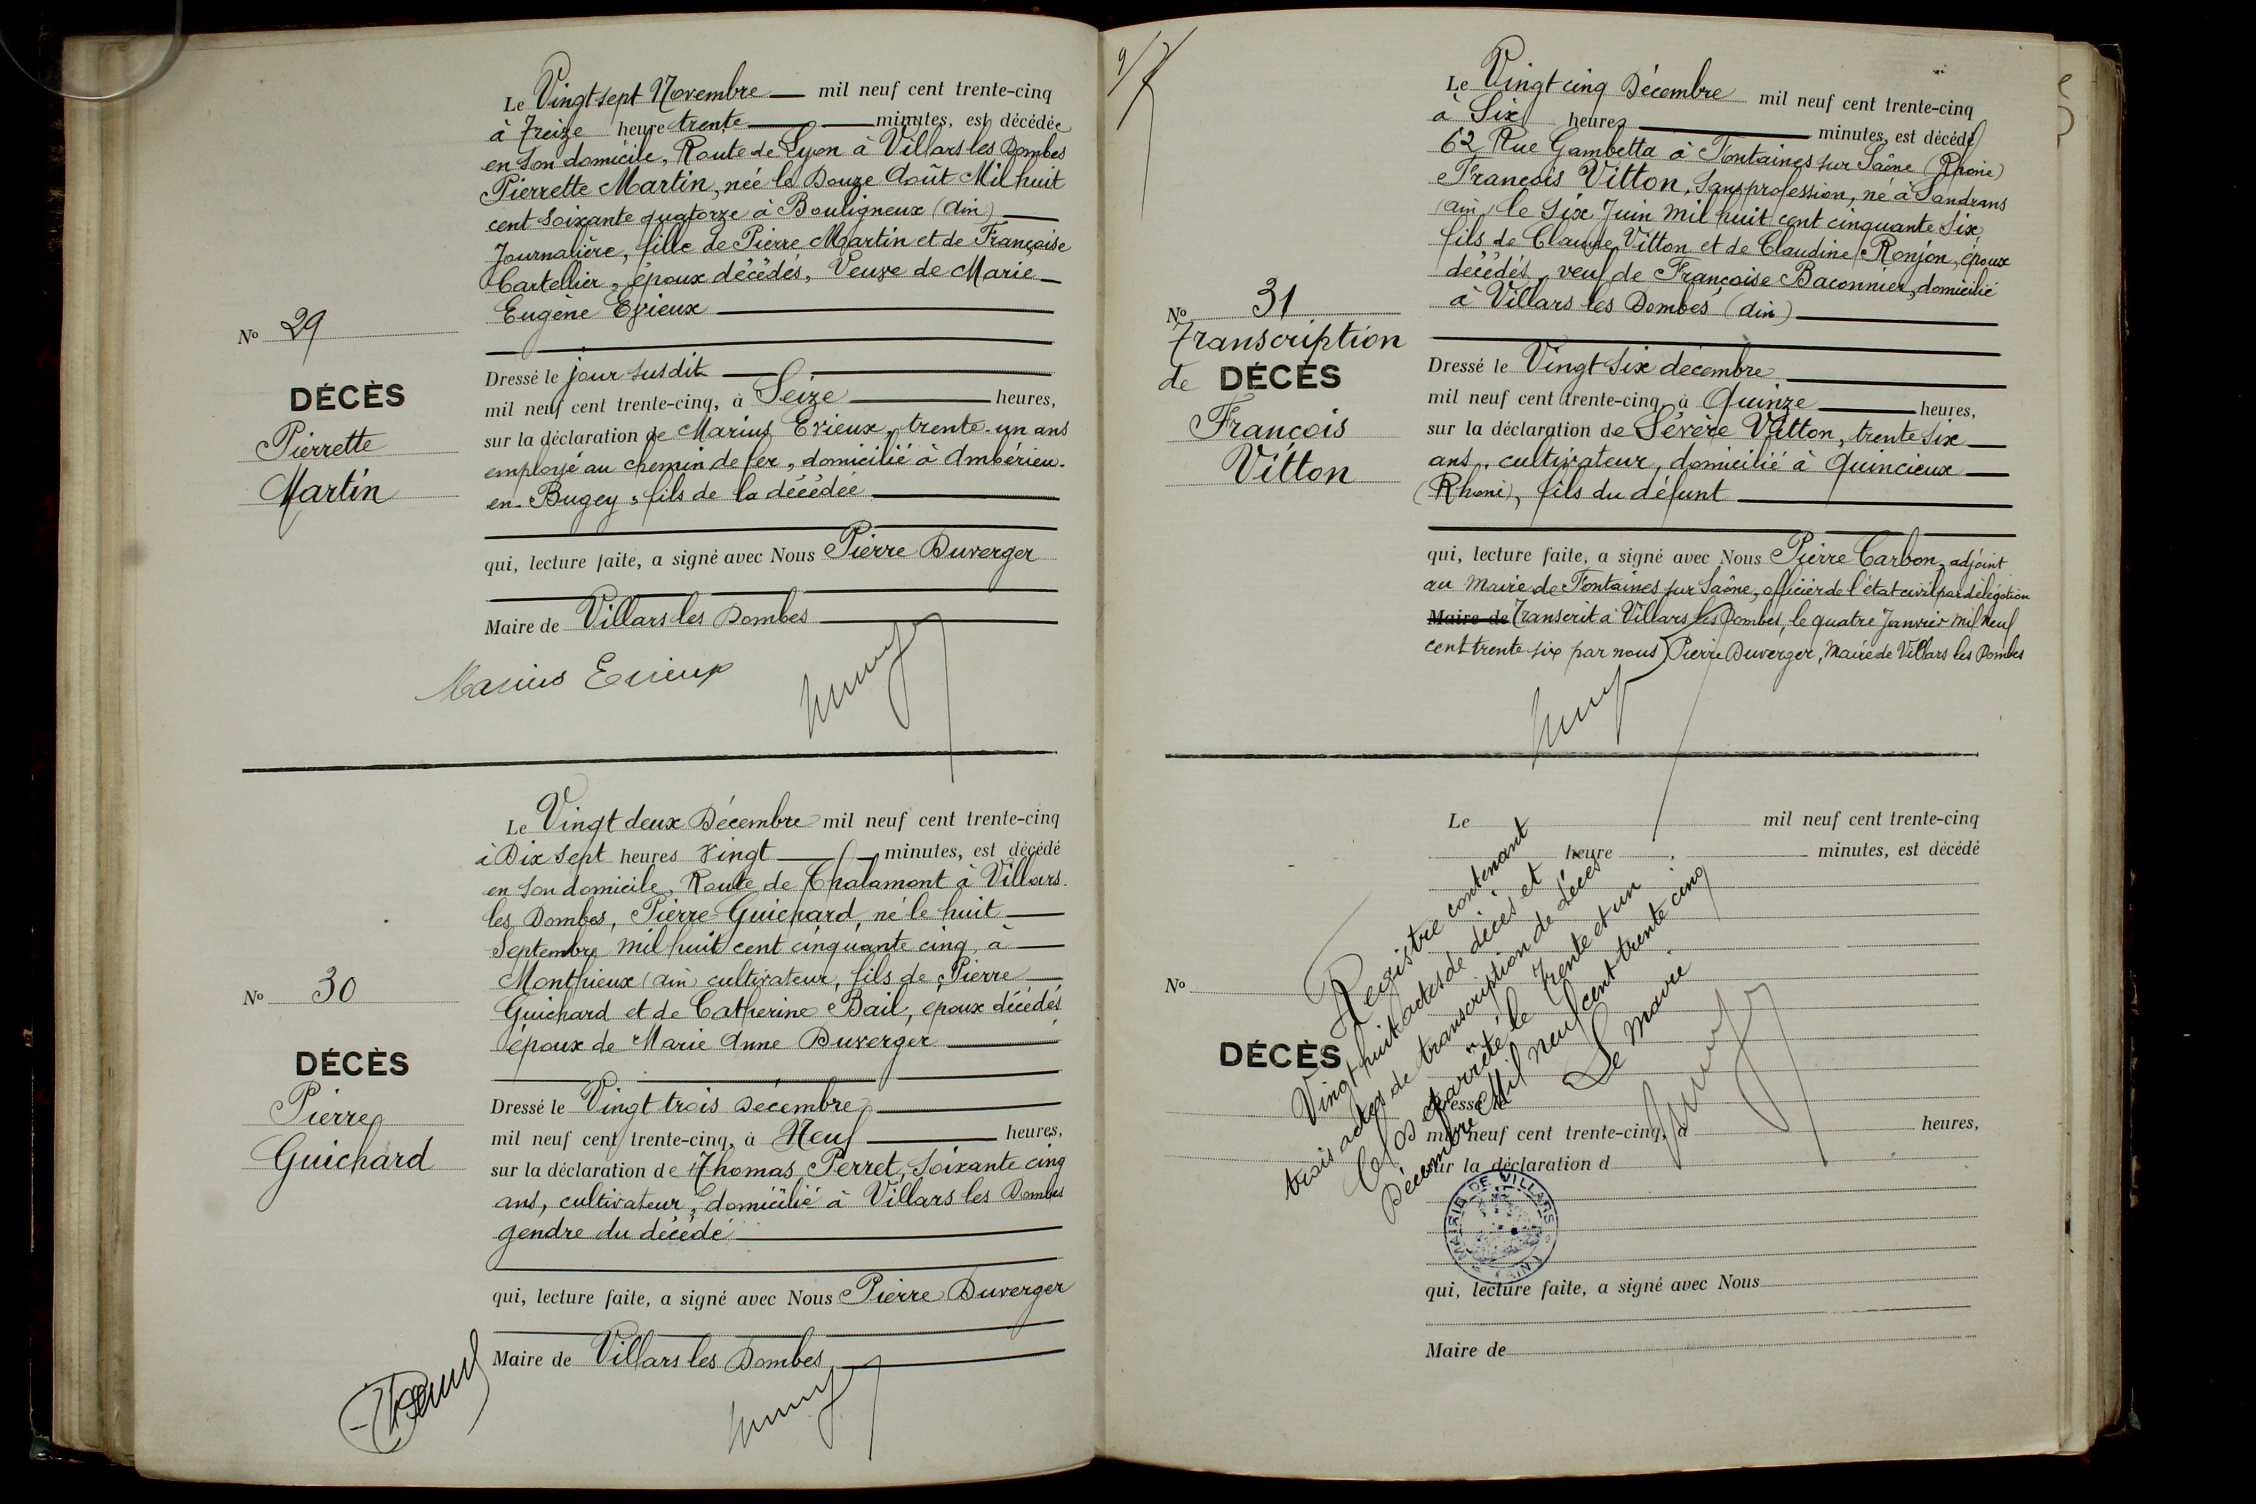 Le Vingt sept Novembre mil neuf cent trente-cinq
à Treize heure trente minutes, est décédée
en son domicile, Route de Lyon à Villars les Dombes
Pierrette Martin, née le Douze Août Mil huit
cent soixante quatorze à Bouligneux (Ain)
Journalière, fille de Pierre Martin et de Françoise
Cartellier, époux décédés, Veuve de Marie
Eugène Evieux
No 29
DÉCÈS
Pierrette
Martin
Dressé le jour susdit
mil neuf cent trente-cinq, à Seize heures,
sur la déclaration de Marius Evieux, trente-un ans
employé au chemin de fer, domicilié à Ambérieu-
en-Bugey, fils de la décédée
qui, lecture faite, a signé avec Nous Pierre Duverger
Maire de Villars les Dombes
Marius Evieux
Le Vingt deux Décembre mil neuf cent trente-cinq
à Dix sept heures Vingt minutes, est décédé
en son domicile, Route de Chalamont à Villars
les Dombes, Pierre Guichard, né le huit
Septembre mil huit cent cinquante cinq à
Monthieux (Ain) cultivateur, fils de Pierre
Guichard et de Catherine Bail, époux décédés
époux de Marie Anne Duverger
No 30
DÉCÈS
Pierre
Guichard
Dressé le Vingt trois Décembre
mil neuf cent trente-cinq, à Neuf heures,
sur la déclaration de Thomas Perret, soixante cinq
ans, cultivateur, domicilié à Villars les Dombes
gendre du décédé
qui, lecture faite, a signé avec Nous Pierre Duverger
Maire de Villars les Dombes
Le Vingt cinq Décembre mil neuf cent trente-cinq
à Six heures minutes, est décédé
62 Rue Gambetta à Fontaines sur Saône (Rhône)
François Vitton, sans profession, né à Sandrans
(Ain) le Six Juin mil huit cent cinquante six
fils de Claude Vitton et de Claudine Ronjon, époux
décédés, veuf de Françoise Baconnier, domicilié
à Villars les Dombes (Ain)
No 31
Transcription
de DÉCÈS
François
Vitton
Dressé le Vingt six décembre
mil neuf cent trente-cinq à Quinze heures,
sur la déclaration de Sévère Vitton, trente six
ans, cultivateur, domicilié à Quincieux
(Rhône), fils du défunt
qui, lecture faite, a signé avec Nous Pierre Carbon, adjoint
au Maire de Fontaines sur Saône, officier de l'état civil par délégation
Maire de Transcrit à Villars les Dombes, le quatre Janvier mil neuf
cent trente six par nous Pierre Duverger, Maire de Villars les Dombes
Le mil neuf cent trente-cinq
heure minutes, est décédé
No
DÉCÈS
Registre contenant
Vingt huit actes de décès et
trois actes de transcription de décès
Clos et arrêté le Trente et un
Décembre Mil neuf cent trente cinq
Le Maire
Dressé le
mil neuf cent trente-cinq, à heures,
sur la déclaration d
MAIRIE DE VILLARS
(AIN)
qui, lecture faite, a signé avec Nous
Maire de